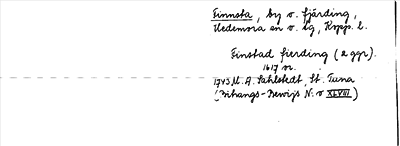 Finnsta, by v. fjärding,
Hedemora sn o. tg, Kopp. l.
Finstad fierding (2 ggr).
1617 nr.
1743 M. A. Sahlstedt, St. Tuna
(Bihangs-Bewijs N:o XLVIII)